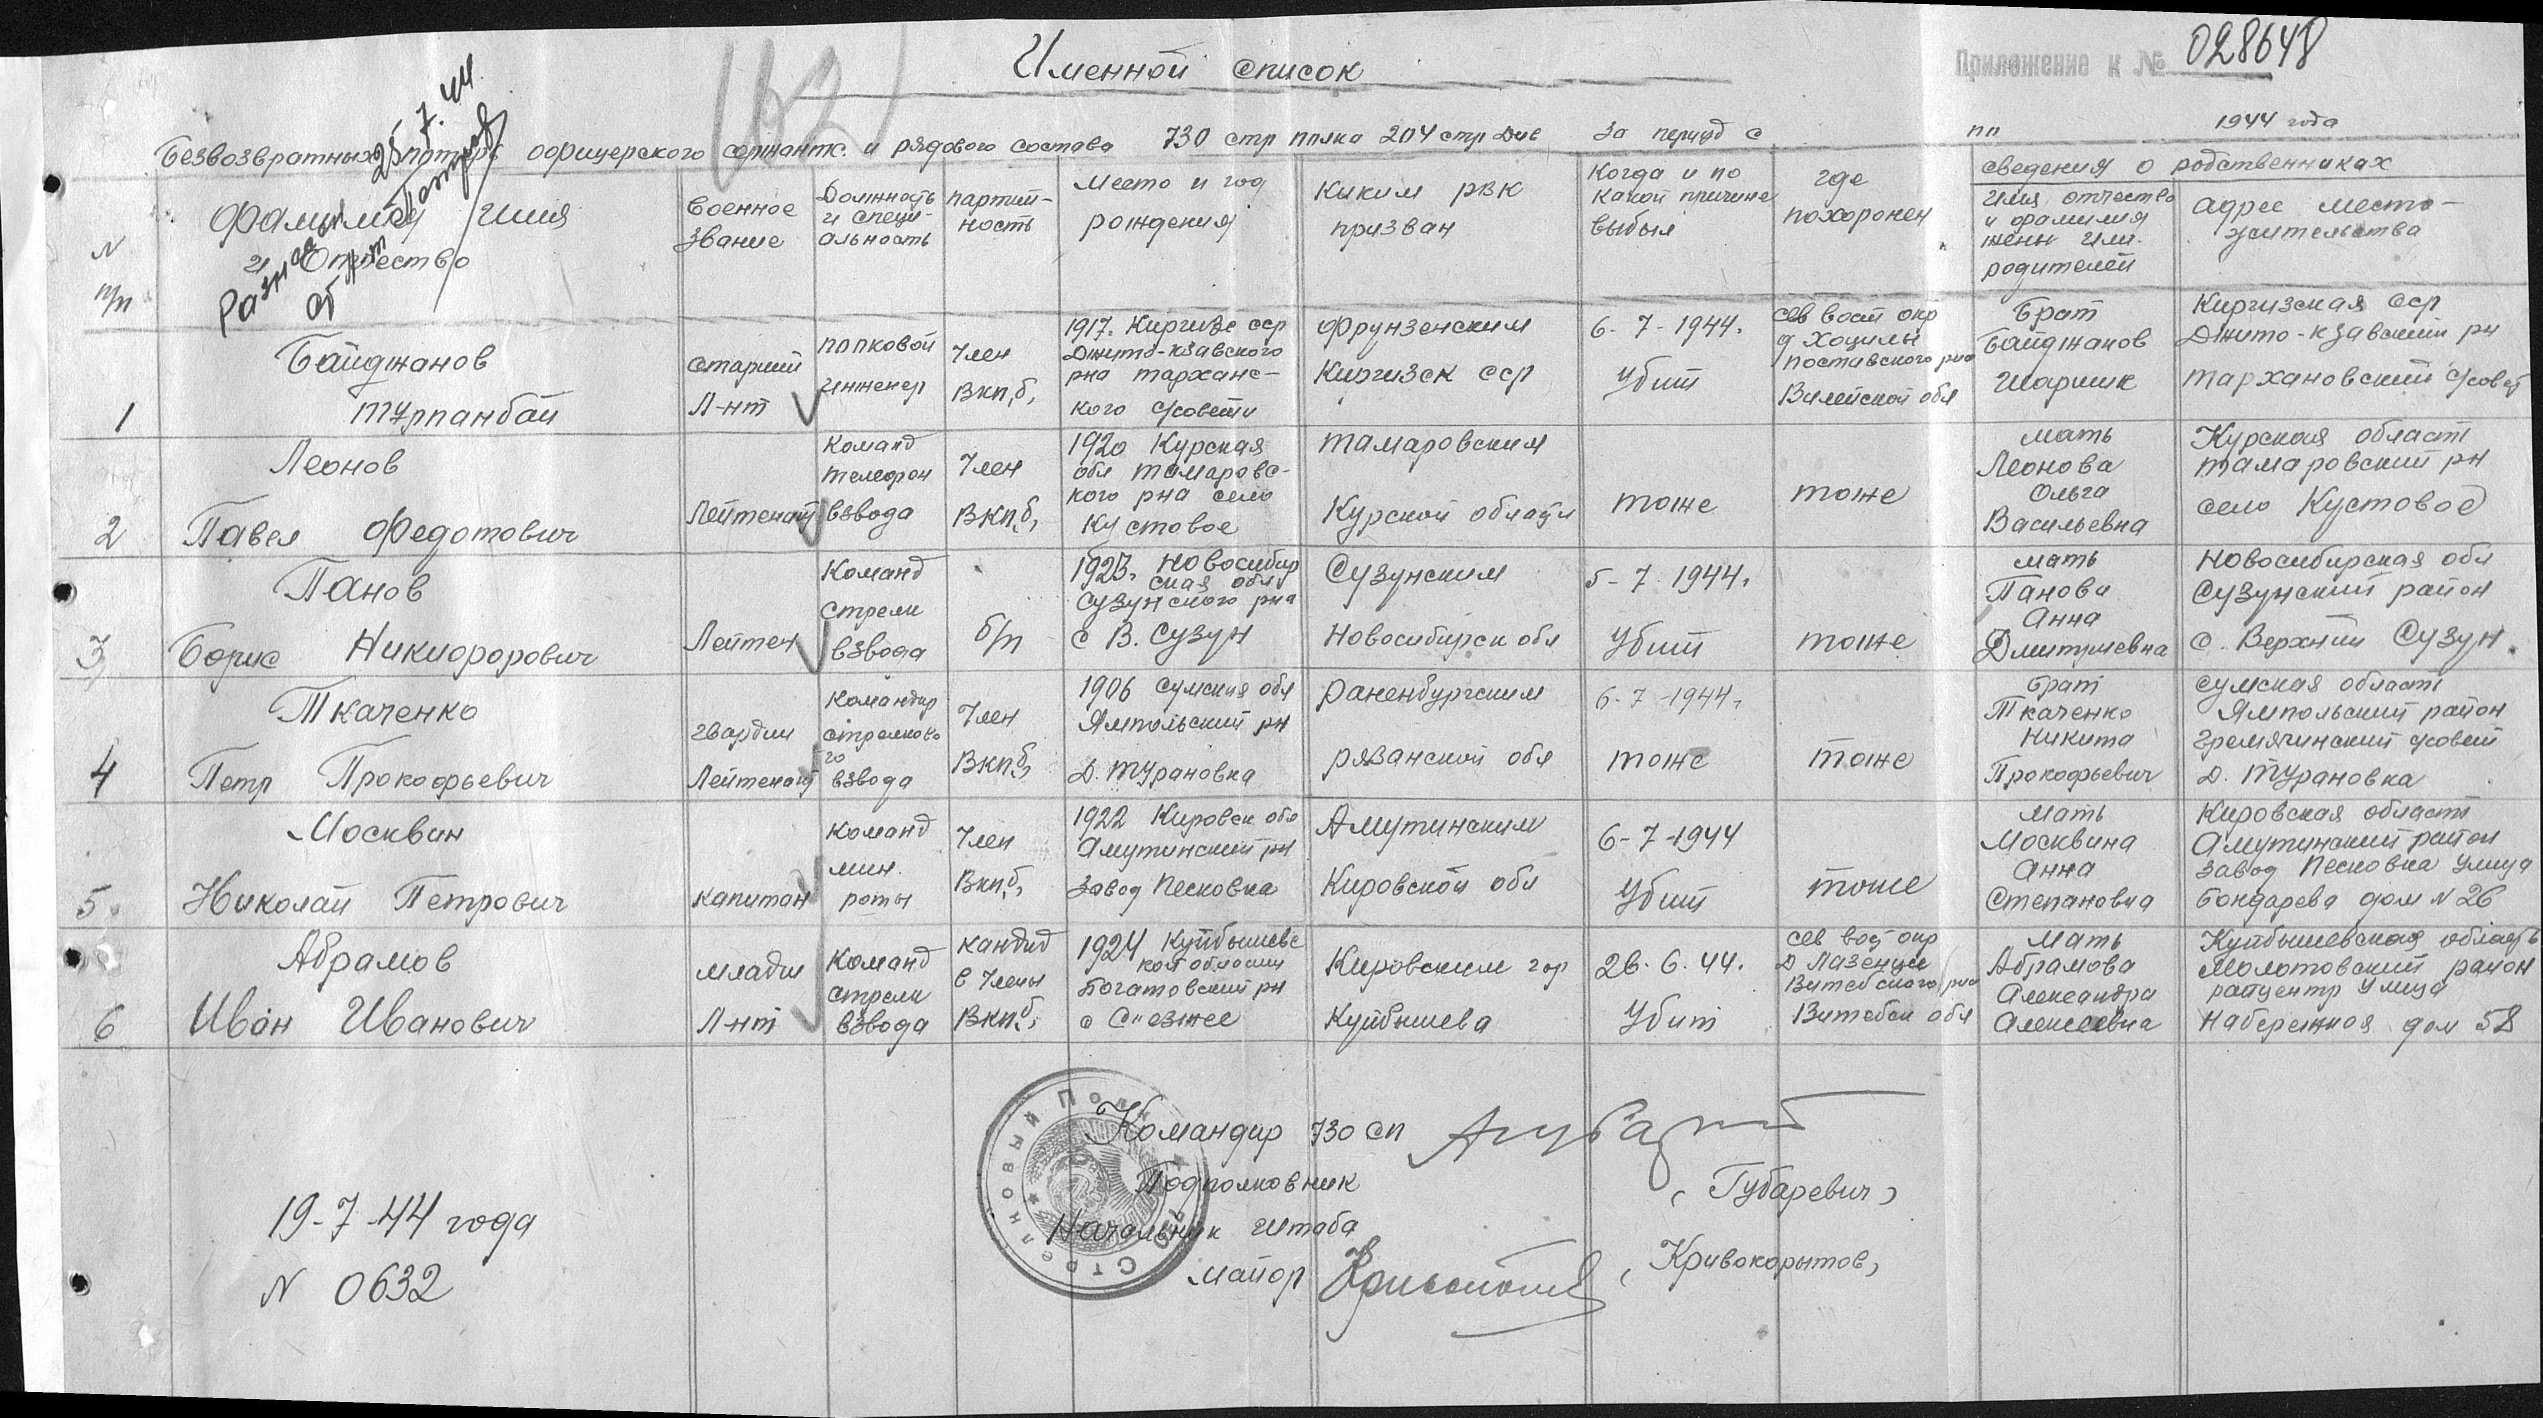 Именной список
Приложение к № 028648
162
25.7.44
Безвозвратных потерь офицерского сержантк. и рядового состава 730 стр полка 204 стр Див за период с по 1944 года
N п/п
Фамилия Имя и Отчество
Военное звание
Должность и специальность
партийность
Место и год рождения
Каким рвк призван
Когда и по какой причине выбыл
где похоронен
сведения о родственниках
Имя отчество и фамилия жены или родителей
адрес местожительства
1
Байджанов
Турпанбай
старший Л-нт
полковой инженер
Член ВКП,б,
1917. Киргизс сср
Джито-кзавского
рна тарханс-
кого с/совета
Фрунзенским
Киргизск сср
6-7-1944.
Убит
сев вост окр
д Хоцилы
поставского рна
Вилейской обл
Брат
Байджанов
Шаршик
Киргизская сср
Джито-кзавский рн
тархановский с/совет
2
Леонов
Павел Федотович
Лейтенант
Команд
телефон
взвода
Член
ВКП,б,
1920 Курская
обл томаровс-
кого рна село
Кустовое
тамаровским
Курской области
тоже
тоже
мать
Леонова
Ольга
Васильевна
Курская область
тамаровский рн
село Кустовое
3
Панов
Борис Никифорович
Лейтен
Команд
стрелк
взвода
б/п
1923. Новосибир
ская обл
Сузунского рна
с В. Сузун
Сузунским
Новосибирск обл
5-7-1944.
Убит
тоже
мать
Панова
Анна
Дмитриевна
Новосибирская обл
Сузунский район
с. Верхний Сузун.
4
Ткаченко
Петр Прокофьевич
гвардии
Лейтенант
Командир
стрелково
го
взвода
Член
ВКП,б,
1906 Сумская обл
Ямпольский рн
д. Турановка
раненбургским
рязанской обл
6-7-1944.
тоже
тоже
брат
Ткаченко
Никита
Прокофьевич
Сумская область
Ямпольский район
гремячинский с/совет
д. Турановка
5.
Москвин
Николай Петрович
капитан
Команд
мин.
роты
Член
Вкп,б,
1922 Кировск обл
Амутинский рн
завод Песковка
Амутинским
Кировской обл
6-7-1944
Убит
тоже
мать
Москвина
Анна
Степановна
Кировская область
Амутинский район
завод Песковка улица
Бондарева дом N 26
6
Абрамов
Иван Иванович
младш
Л-нт
Команд
стрелк
взвода
кандид
в Члены
Вкп,б,
1924 Куйбышевс
кой области
Богатовский рн
с Съезжее
Кировским гор
Куйбышева
26.6.44.
Убит
сев вост окр
д Лазенки
Витебского рна
Витебск обл
Мать
Абрамова
Александра
Алексеевна
Куйбышевская область
Молотовский район
райцентр улица
Набережная дом 58
Командир 730 сп
Подполковник (Губаревич)
Начальник штаба
майор (Кривокорытов)
730 Стрелковый Полк
19-7-44 года
N 0632